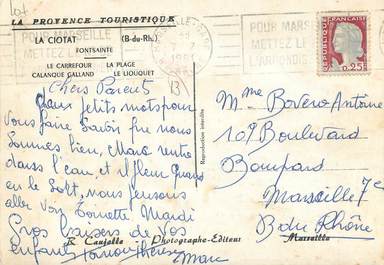 LA PROVENCE TOURISTIQUE
LA CIOTAT (B-du-Rh.)
FONTSAINTE
LE CARREFOUR LA PLAGE
CALANQUE GALLAND LE LIOUQUET
Chers Parents
Deux petits mots pour
vous faire savoir que nous
sommes bien, Marc rentre
dans l'eau, et
le
aller voir Toinette Mardi
Gros baisers de vos
enfants Thérèse
Marc
R. Caujolle Photographe-Editeur Marseille
Reproduction interdite
13
POUR MARSEILLE
METTEZ LE
7-7
POUR MARS
METTEZ LE
L'ARRONDIS
REPUBLIQUE FRANÇAISE
0,25
Mme Bovero Antoine
107 Boulevard
Bompard
Marseille 7e
B du Rhône